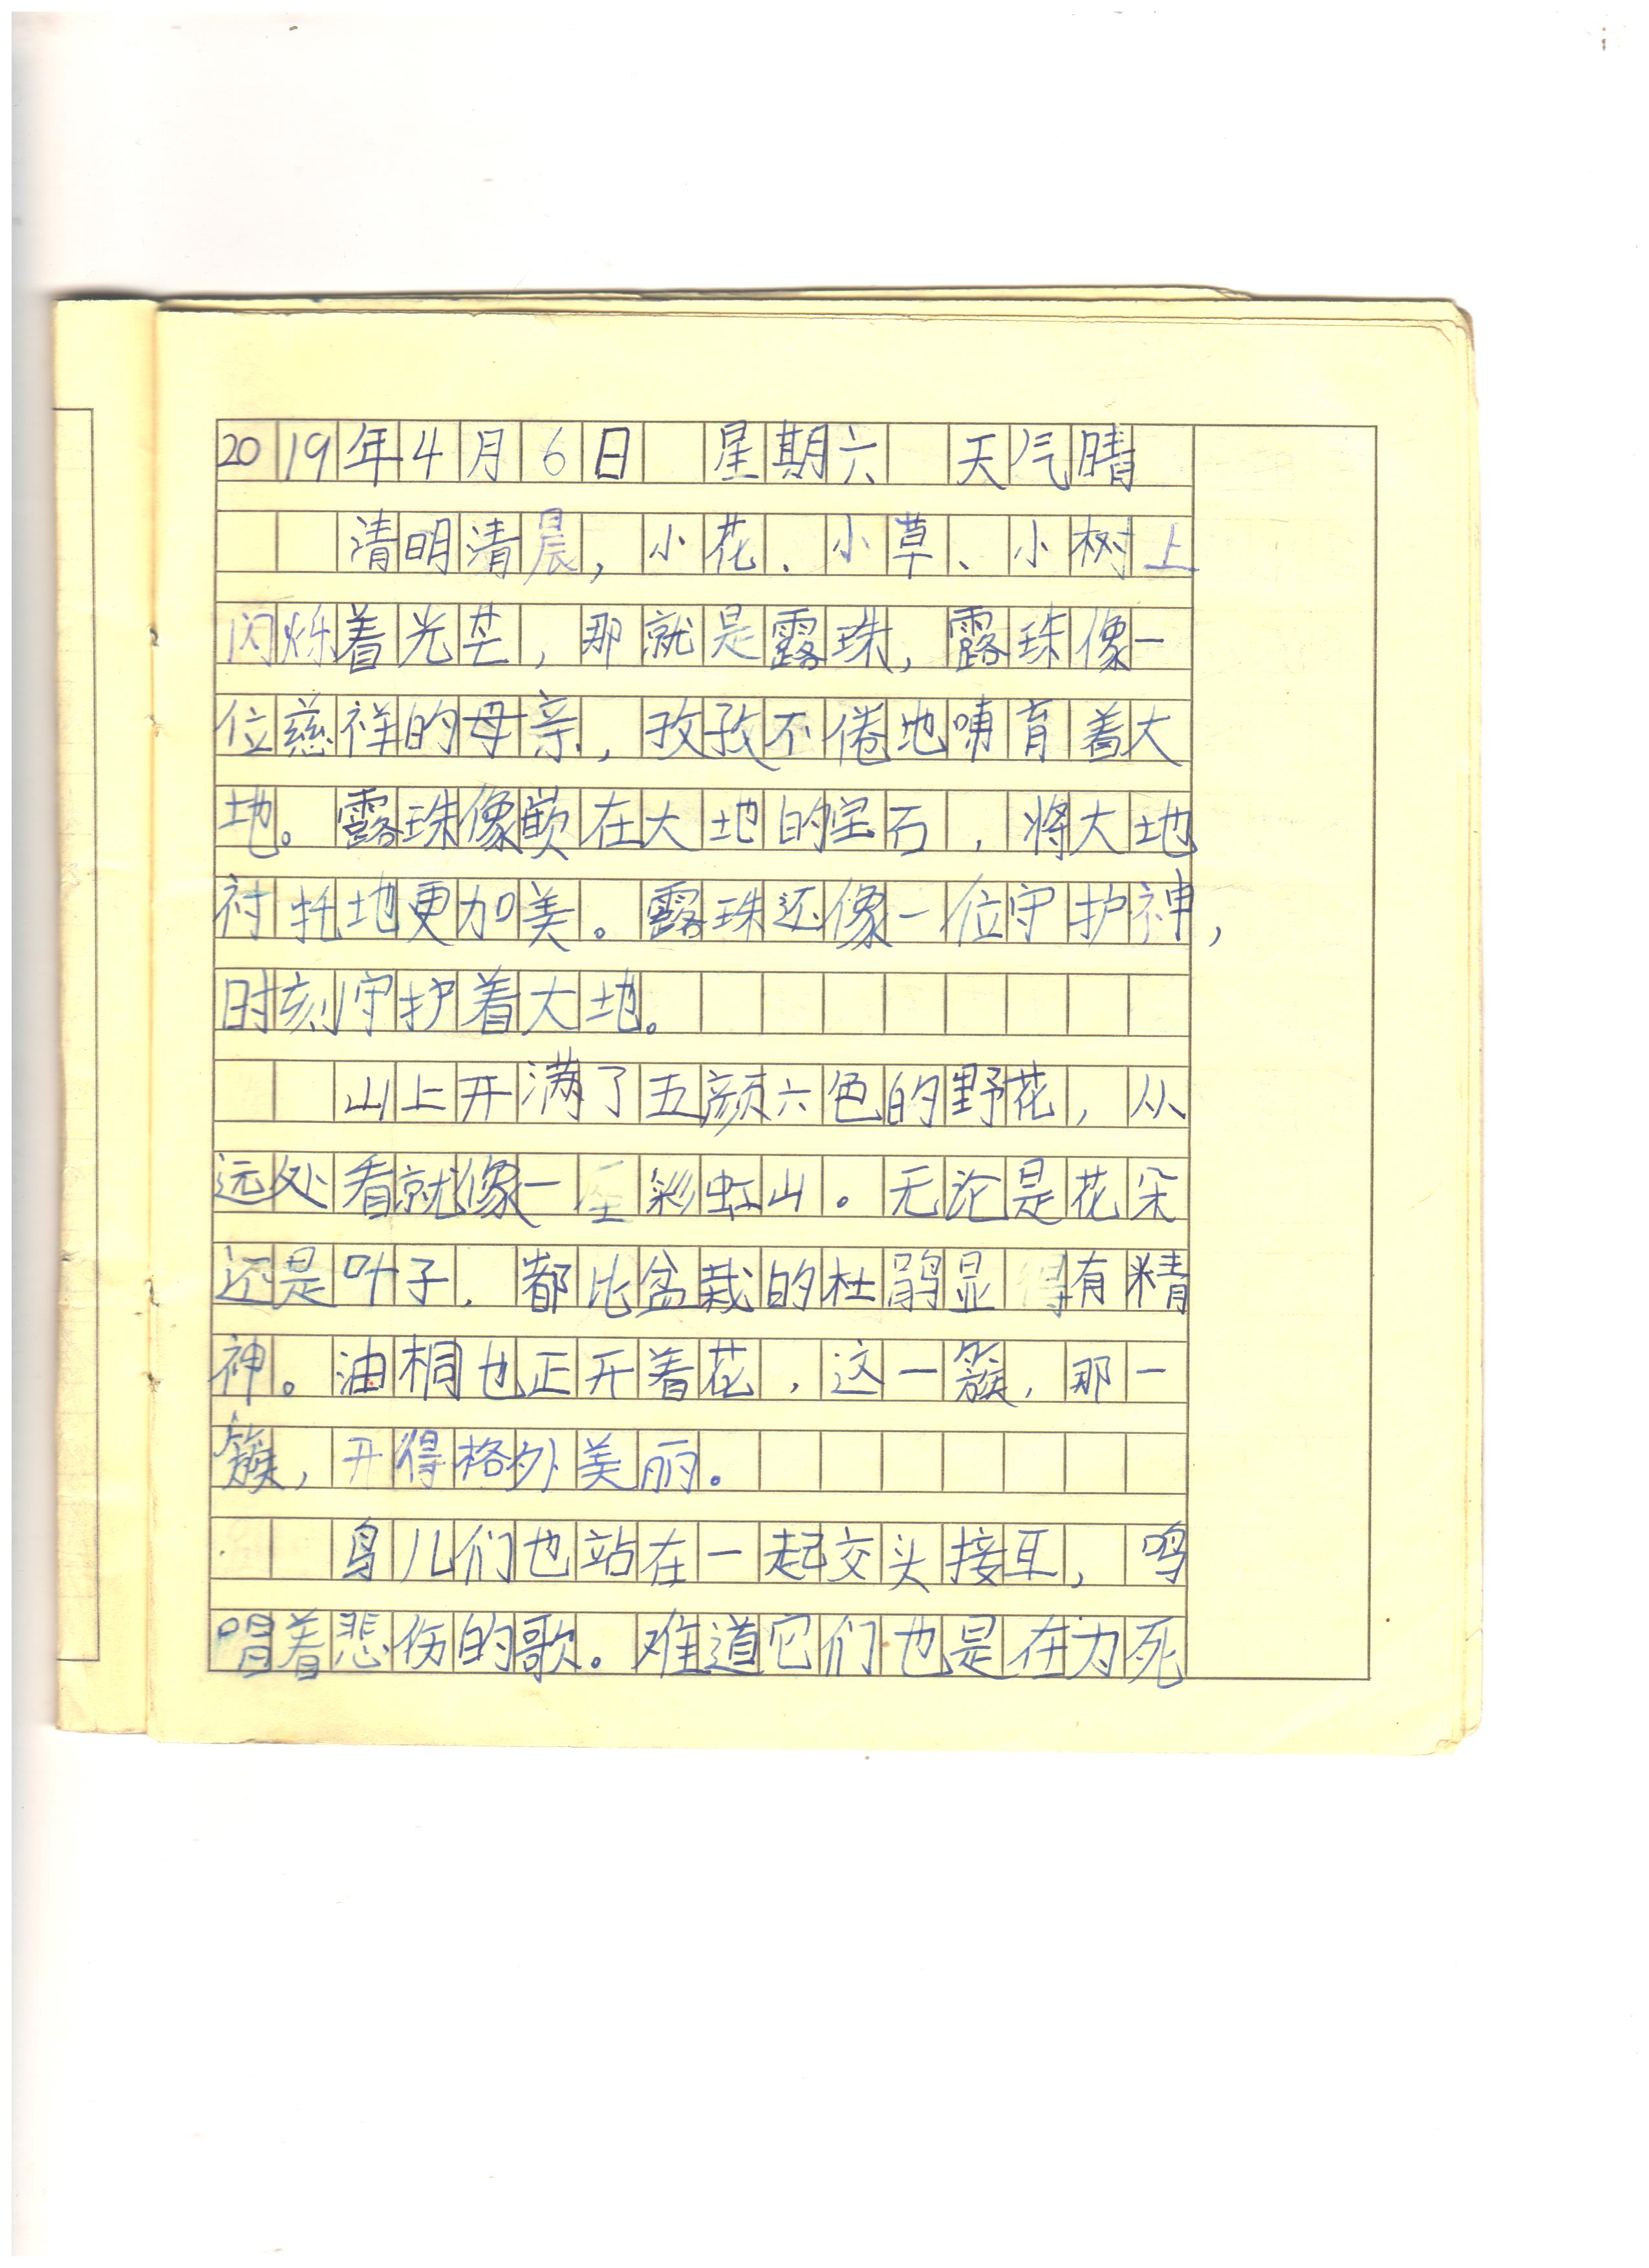 2019年4月6日 星期六 天气晴
清明清晨，小花、小草、小树上
闪烁着光芒，那就是露珠，露珠像一
位慈祥的母亲，孜孜不倦地哺育着大
地。露珠像嵌在大地的宝石，将大地
衬托地更加美。露珠还像一位守护神，
时刻守护着大地。
山上开满了五颜六色的野花，从
远处看就像一座彩虹山。无论是花朵
还是叶子，都比盆栽的杜鹃显得有精
神。油桐也正开着花，这一簇，那一
簇，开得格外美丽。
鸟儿们也站在一起交头接耳，鸣
唱着悲伤的歌。难道它们也是在为死